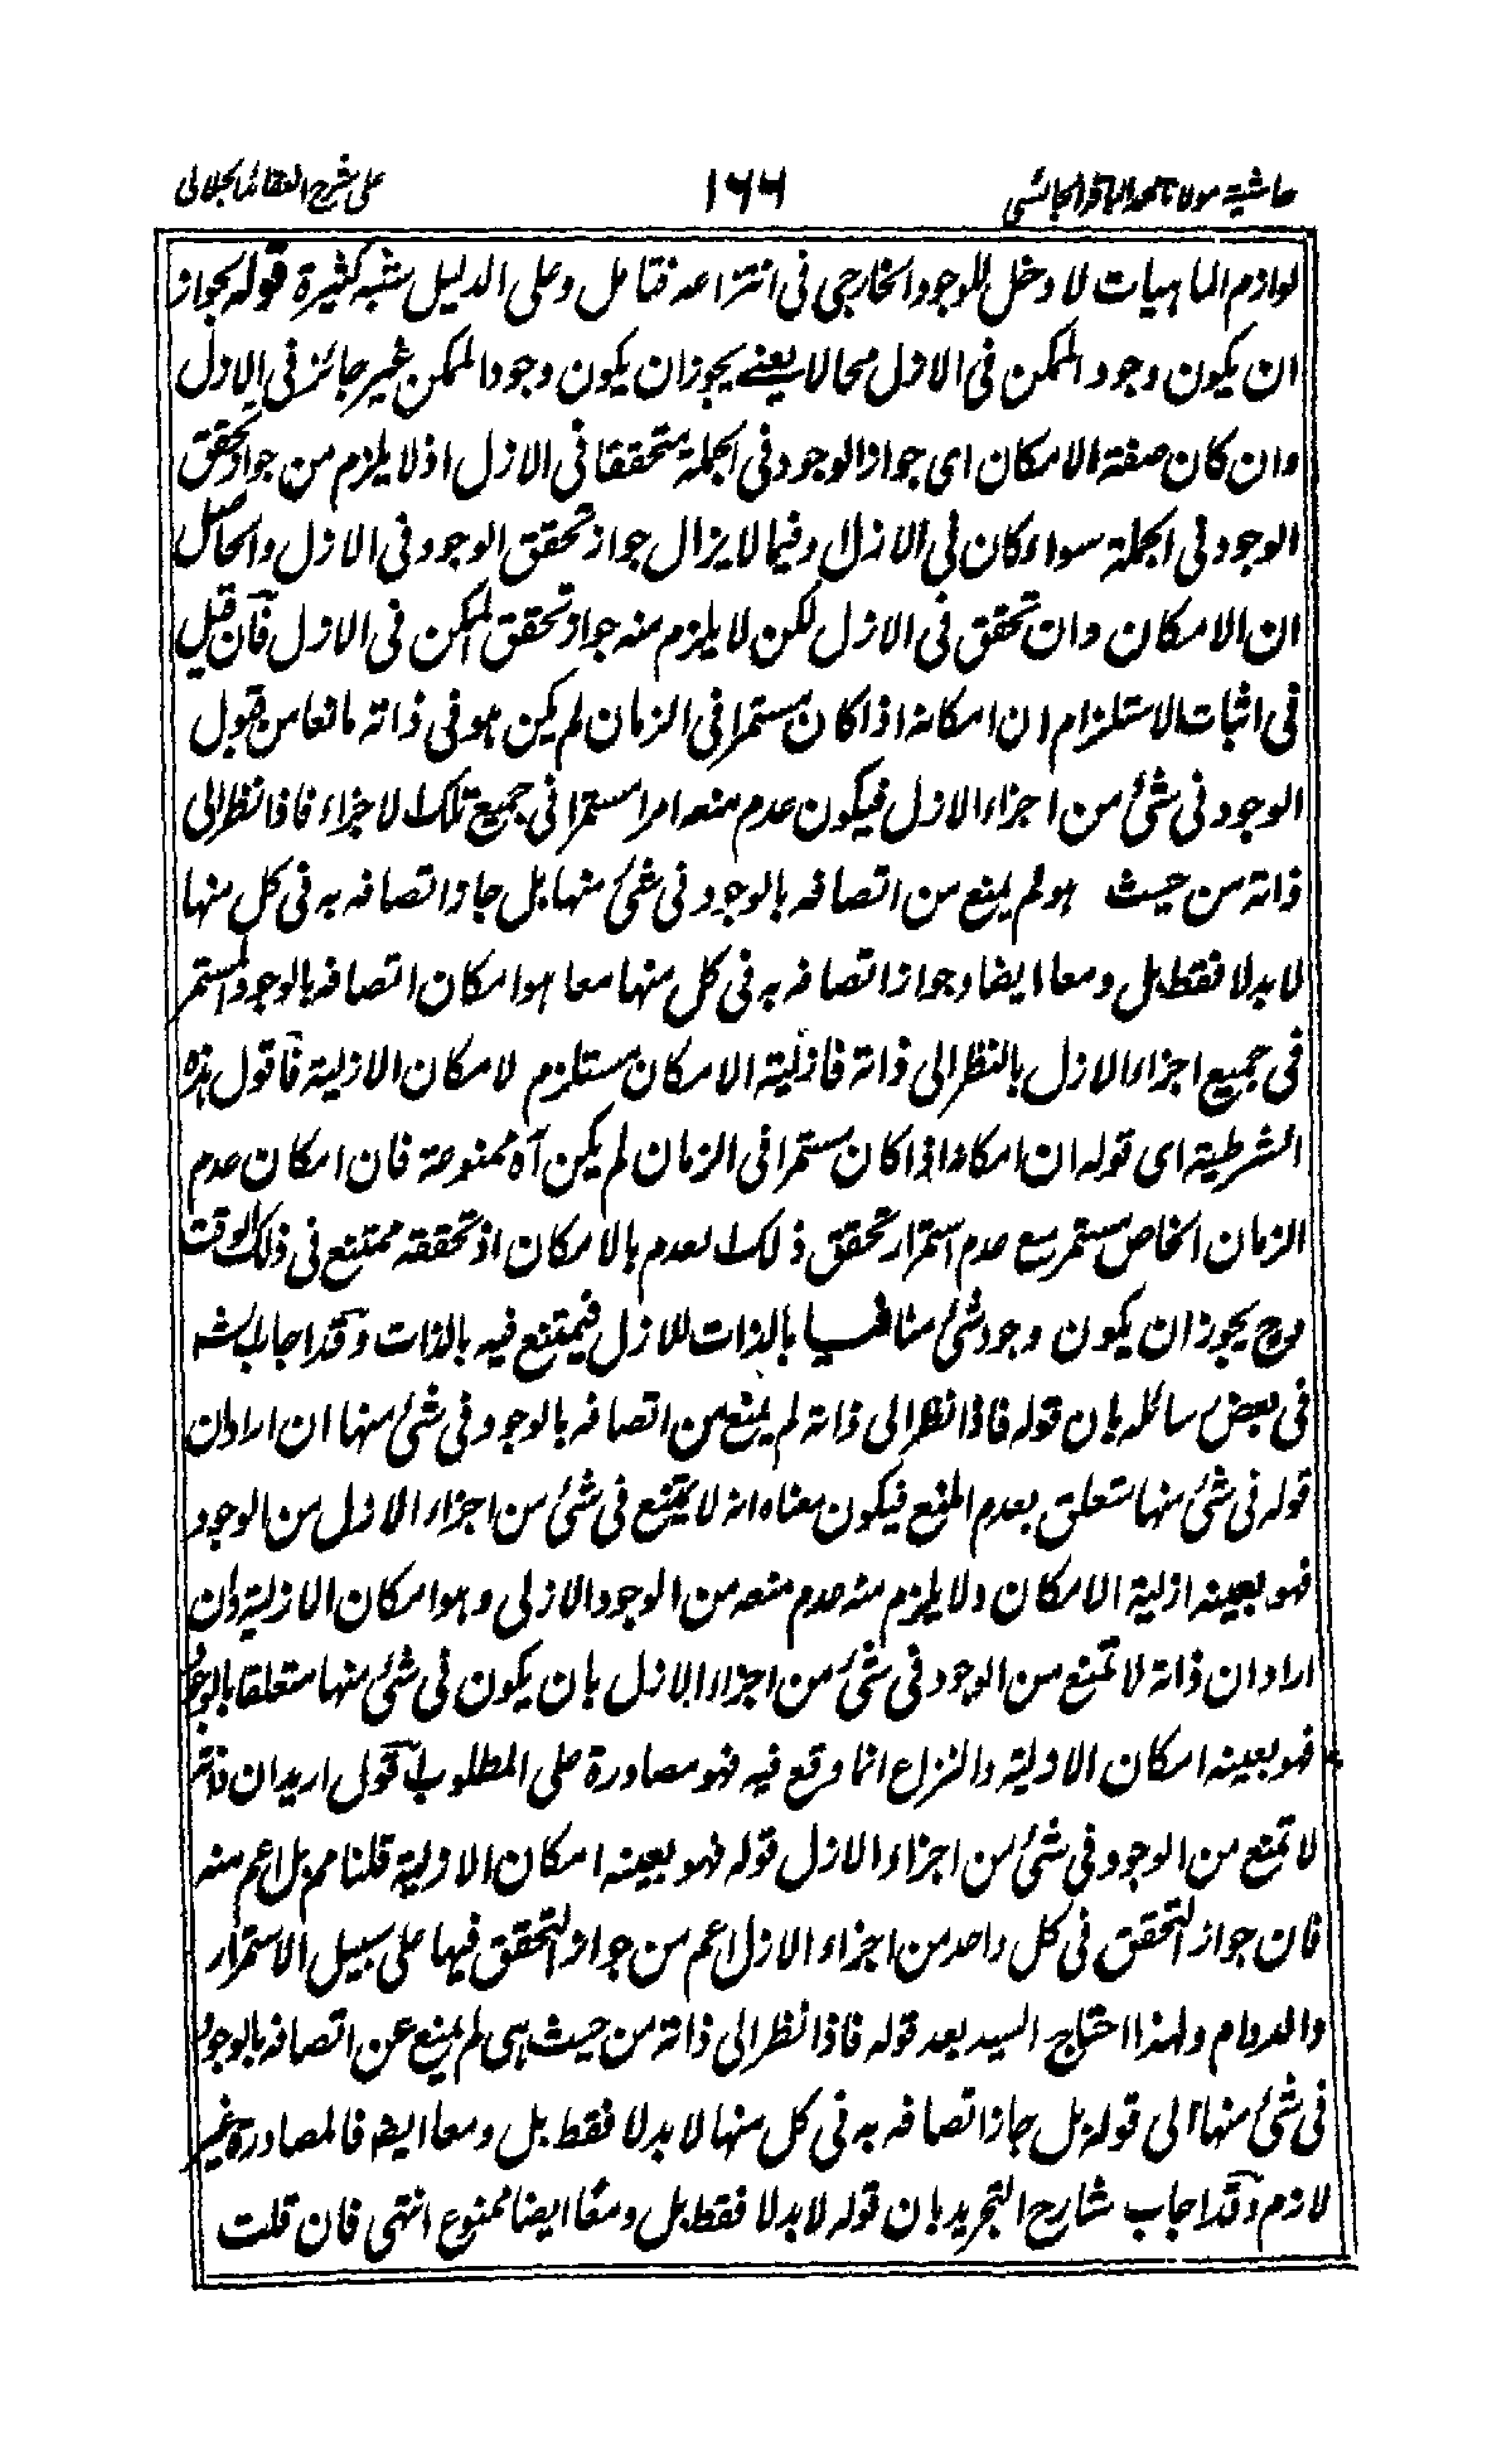 حاشیة مولانا محمد الباقر الجائسی ١٦٦ علی شرح العقائد الجلالی
لوازم الماہیات لا دخل للوجود الخارجی فی انتزاعہ فتامل وعلی الدلیل شبہ کثیرة قولہ بجواز
ان یکون وجود الممکن فی الازل محالا یعنے یجوز ان یکون وجود الممکن غیر جائز فی الازل
وان کان صفة الامکان ای جواز الوجود فی الجملة متحققا فی الازل اذ لا یلزم من جواز تحقق
الوجود فی الجملة سواء کان فی الازل او فیما لا یزال جواز تحقق الوجود فی الازل والحاصل
ان الامکان وان تحقق فی الازل لکن لا یلزم منہ جواز تحقق الممکن فی الازل فان قیل
فی اثبات الاستلزام ان امکانہ اذا کان مستمرا فی الزمان لم یکن ہو فی ذاتہ مانعا من قبول
الوجود فی شئ من اجزاء الازل فیکون عدم منعہ امرا مستمرا فی جمیع تلک الاجزاء فاذا نظر الی
ذاتہ من حیث ہو لم یمنع من اتصافہ بالوجود فی شئ منہا بل جاز اتصافہ بہ فی کل منہا
لا بدلا فقط بل ومعا ایضا وجواز اتصافہ بہ فی کل منہا معا ہو امکان اتصافہ بالوجود المستمر
فی جمیع اجزاء الازل بالنظر الی ذاتہ فازلیة الامکان مستلزم لامکان الازلیة فاقول ہذہ
الشرطیة ای قولہ ان امکانہ اذا کان مستمرا فی الزمان لم یکن آہ ممنوعة فان امکان عدم
الزمان الخاص مستمر مع عدم استمرار تحقق ذلک العدم بالامکان اذ تحققہ ممتنع فی ذلک الوقت
وح یجوز ان یکون وجود شئ منافیا بالذات للازل فیمتنع فیہ بالذات وقد اجاب الش
فی بعض رسائلہ بان قولہ فاذا نظر الی ذاتہ لم یمنع من اتصافہ بالوجود فی شئ منہا ان اراد ان
قولہ فی شئ منہا متعلق بعدم المنع فیکون معناہ انہ لا یمتنع فی شئ من اجزاء الازل من الوجود
فہو بعینہ ازلیة الامکان ولا یلزم منہ عدم منعہ من الوجود الازلی وہو امکان الازلیة وان
اراد ان ذاتہ لا تمنع من الوجود فی شئ من اجزاء الازل بان یکون فی شئ منہا متعلقا بالوجود
فہو بعینہ امکان الازلیة والنزاع انما وقع فیہ فہو مصادرة علی المطلوب اقول ارید ان ذاتہ
لا تمنع من الوجود فی شئ من اجزاء الازل قولہ فہو بعینہ امکان الازلیة قلنا مم بل اعم منہ
فان جواز التحقق فی کل واحد من اجزاء الازل اعم من جواز التحقق فیہا علی سبیل الاستمرار
والدوام ولہذا احتاج السید بعد قولہ فاذا نظر الی ذاتہ من حیث ہی لم یمنع عن اتصافہ بالوجود
فی شئ منہا الی قولہ بل جاز اتصافہ بہ فی کل منہا لا بدلا فقط بل ومعا ایضہ فالمصادرة غیر
لازم وقد اجاب شارح التجرید بان قولہ لا بدلا فقط بل ومعا ایضا ممنوع انتہی فان قلت